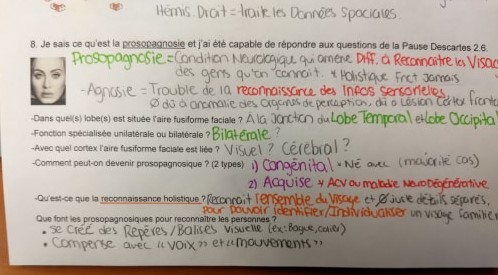 Hémis. Droit = traite les Données Spaciales
8. Je sais ce qu'est la prosopagnosie et j'ai été capable de répondre aux questions de la Pause Descartes 2.6.
Prosopagnosie = Condition Neurologique qui amène Diff. à Reconnaître les Visag
des gens qu'on connaît. * Holistique Fnct Jamais
- Agnosie = Trouble de la reconnaissance des Infos sensorielles
Ø dû à anomalie des organes de perception, dû à Lésion
-Dans quel(s) lobe(s) est située l'aire fusiforme faciale ? A la Jonction du Lobe Temporal et Lobe Occipita
-Fonction spécialisée unilatérale ou bilatérale ? Bilatérale ?
-Avec quel cortex l'aire fusiforme faciale est liée ? Visuel ? Cérébral ?
-Comment peut-on devenir prosopagnosique ? (2 types) 1) Congénital * Né avec (majorité cas)
2) Acquise * ACV ou maladie NeuroDégénérative.
-Qu'est-ce que la reconnaissance holistique ? Reconnaît l'ensemble du Visage et Ø juste détails séparés,
pour pouvoir identifier/Individualiser un visage familier
Que font les prosopagnosiques pour reconnaître les personnes ?
• Se Créé des Repères/Balises visuelle (ex: Bague, collier)
• Compense avec « voix » et « mouvements »